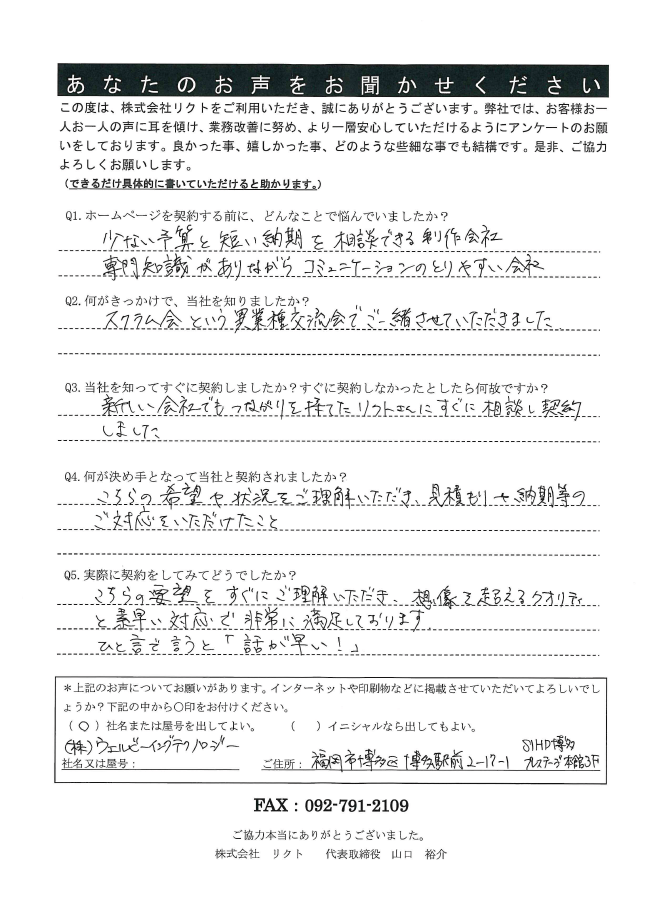 あなたのお声をお聞かせください
この度は、株式会社リクトをご利用いただき、誠にありがとうございます。弊社では、お客様お一
人お一人の声に耳を傾け、業務改善に努め、より一層安心していただけるようにアンケートのお願
いをしております。良かった事、嬉しかった事、どのような些細な事でも結構です。是非、ご協力
よろしくお願いします。
(できるだけ具体的に書いていただけると助かります。)
Q1.ホームページを契約する前に、どんなことで悩んでいましたか?
少ない予算と短い納期を相談できる制作会社
専門知識がありながらコミュニケーションのとりやすい会社
Q2.何がきっかけで、当社を知りましたか?
スクラム会という異業種交流会でご一緒させていただきました
Q3.当社を知ってすぐに契約しましたか?すぐに契約しなかったとしたら何故ですか?
新しい会社でもつながりを持てたリクトさんにすぐに相談し契約
しました
Q4.何が決め手となって当社と契約されましたか?
こちらの希望や状況をご理解いただき、見積もりや納期等の
ご対応をいただけたこと
Q5.実際に契約をしてみてどうでしたか?
こちらの要望をすぐにご理解いただき、想像を超えるクオリティ
と素早い対応で非常に満足しております
ひと言で言うと「話が早い!」
*上記のお声についてお願いがあります。インターネットや印刷物などに掲載させていただいてよろしいでし
ょうか?下記の中から○印をお付けください。
(○)社名または屋号を出してよい。 ( )イニシャルなら出してもよい。
(株)ウェルビーイングテクノロジー
社名又は屋号: ご住所: 福岡市博多区博多駅前2-17-1 SIHD博多
プレステージ本館3F
FAX:092-791-2109
ご協力本当にありがとうございました。
株式会社 リクト 代表取締役 山口 裕介